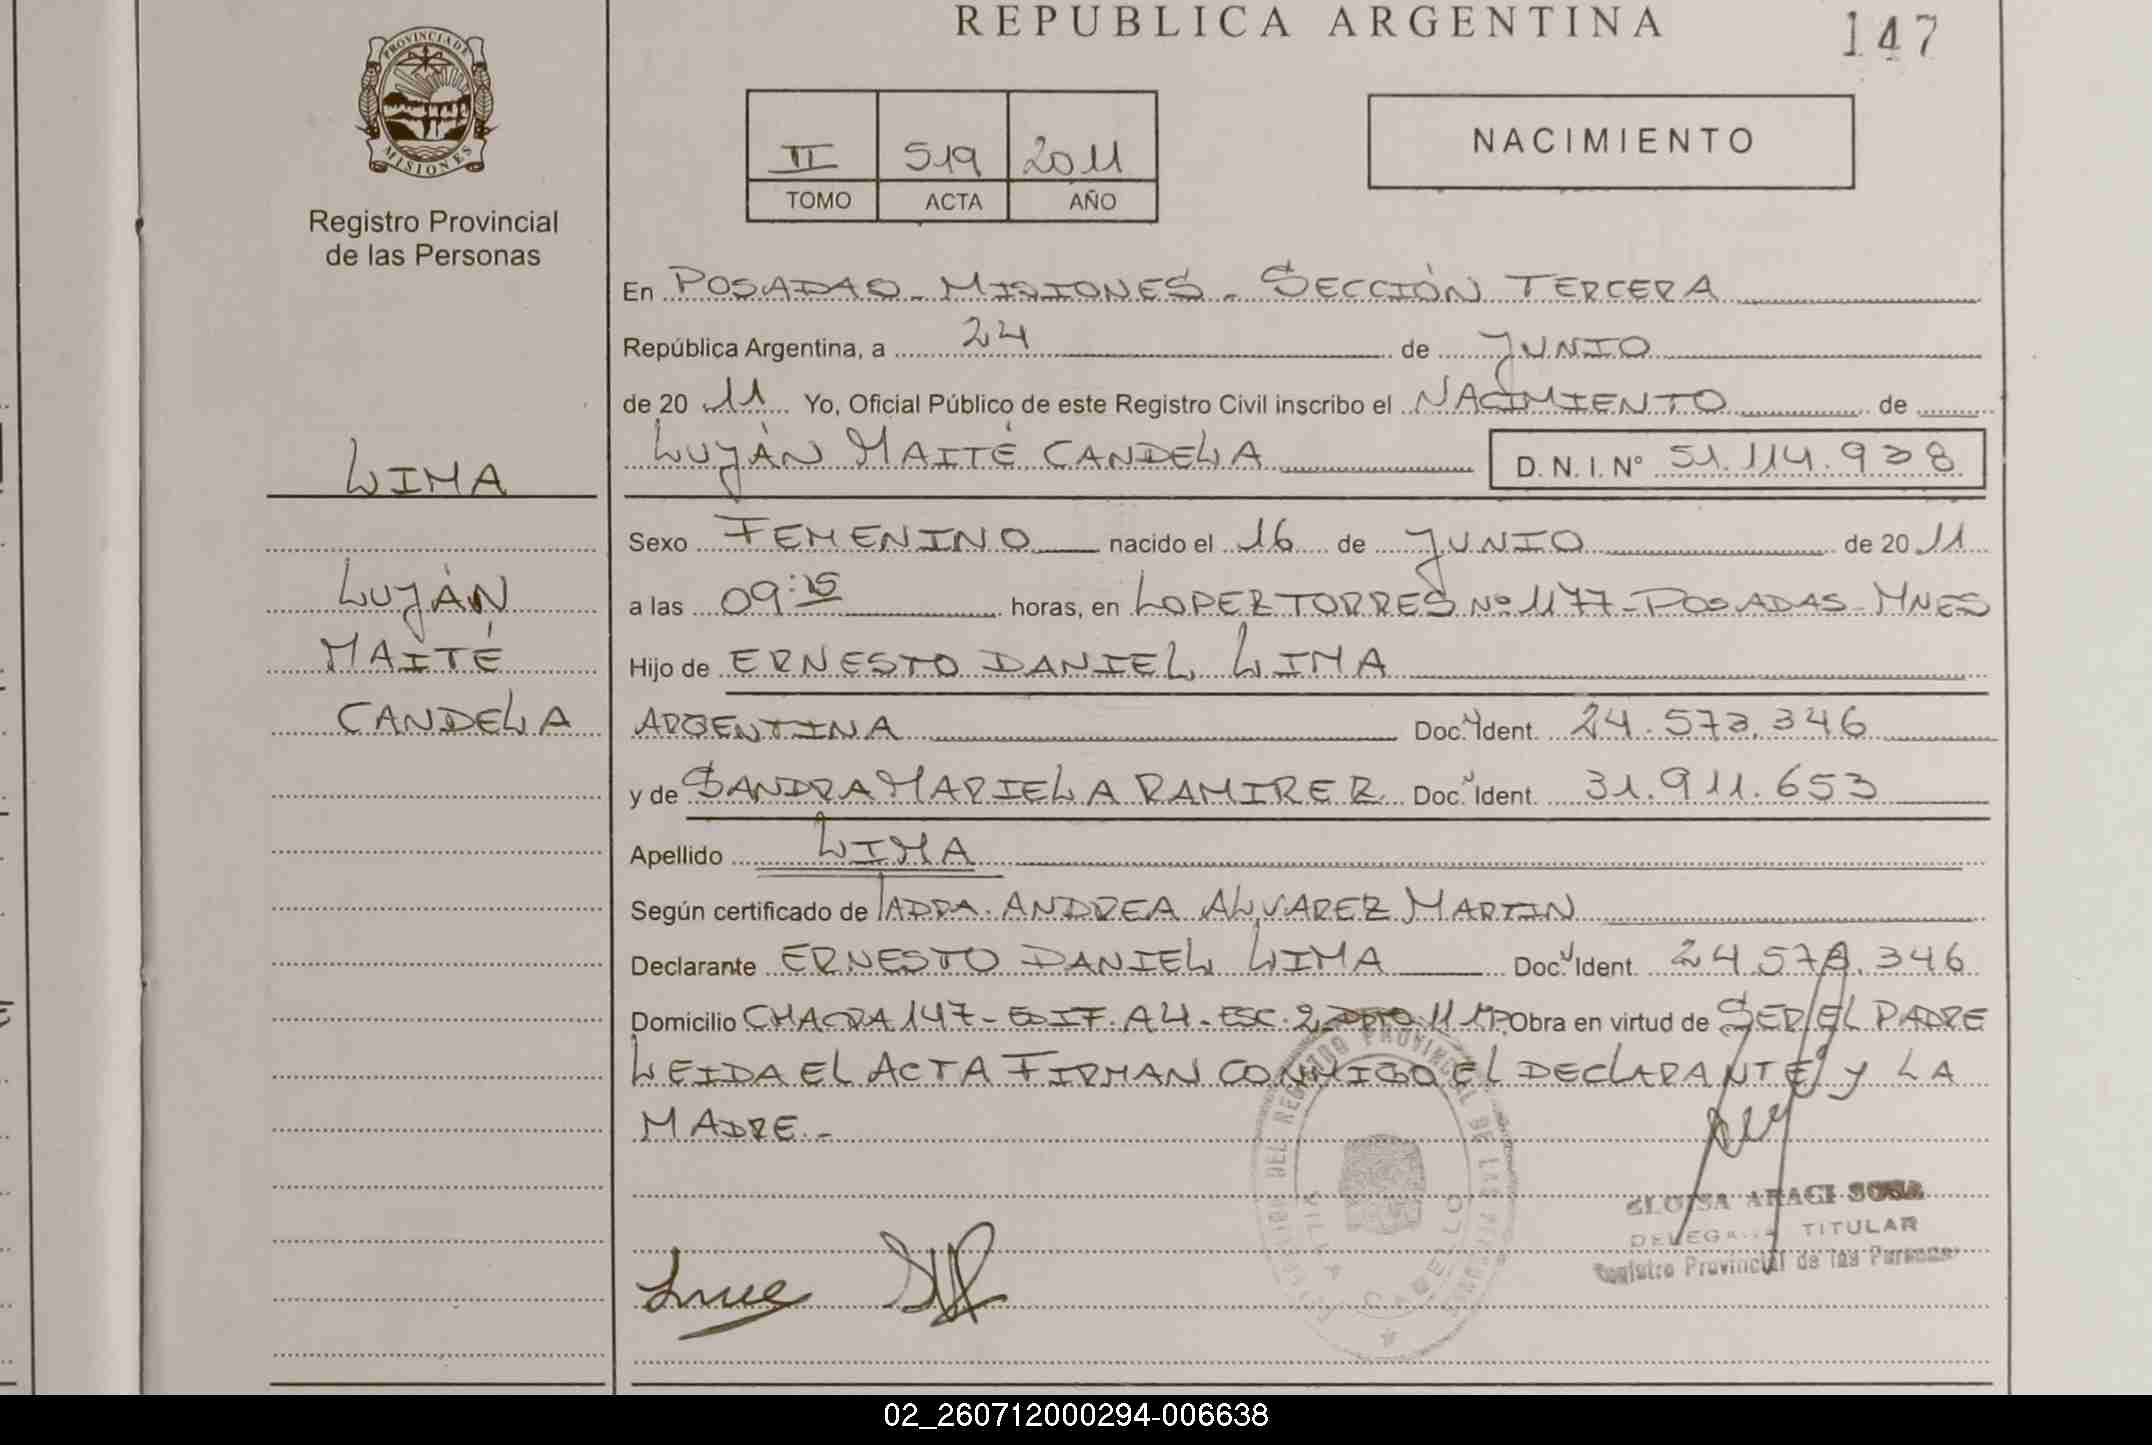 REPUBLICA ARGENTINA
147
PROVINCIA DE
MISIONES
Registro Provincial
de las Personas
II 519 2011
TOMO ACTA AÑO
NACIMIENTO
En POSADAS - MISIONES - SECCIÓN TERCERA
República Argentina, a 24 de JUNIO
de 20 11 Yo, Oficial Público de este Registro Civil inscribo el NACIMIENTO de
LUJÁN MAITÉ CANDELA D. N. I. N° 51.114.938
LIMA
Sexo FEMENINO nacido el 16 de JUNIO de 20 11
LUJÁN
a las 09:15 horas, en LOPEZ TORRES Nº 1177 - POSADAS - MNES
MAITÉ
Hijo de ERNESTO DANIEL LIMA
CANDELA
ARGENTINA Doc. Ident. 24.573.346
y de SANDRA MARIELA RAMIREZ Doc. Ident. 31.911.653
Apellido LIMA
Según certificado de ANDREA ALVAREZ MARTIN
Declarante ERNESTO DANIEL LIMA Doc. Ident. 24.573.346
Domicilio CHACRA 147 - EDIF. A4 - ESC. 2 DPTO 11 1P. Obra en virtud de SER EL PADRE
LEIDA EL ACTA FIRMAN CONMIGO EL DECLARANTE Y LA
MADRE.-
DEL REGISTRO PROVINCIAL DE LAS PERSONAS
VILLA CABELLO
ELOISA ARACI SOSA
DELEGADA TITULAR
Registro Provincial de las Personas
02_260712000294-006638